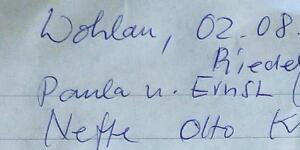 Wohlau, 02.08.
Riedel
Paula u. Ernst (
Neffe Otto K